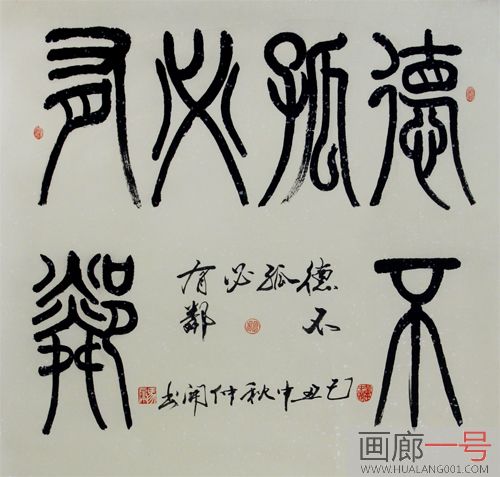 德不
孤
必
有鄰
德不
孤
必
有鄰
己丑中秋仲书
画廊一号
WWW.HUALANG001.COM